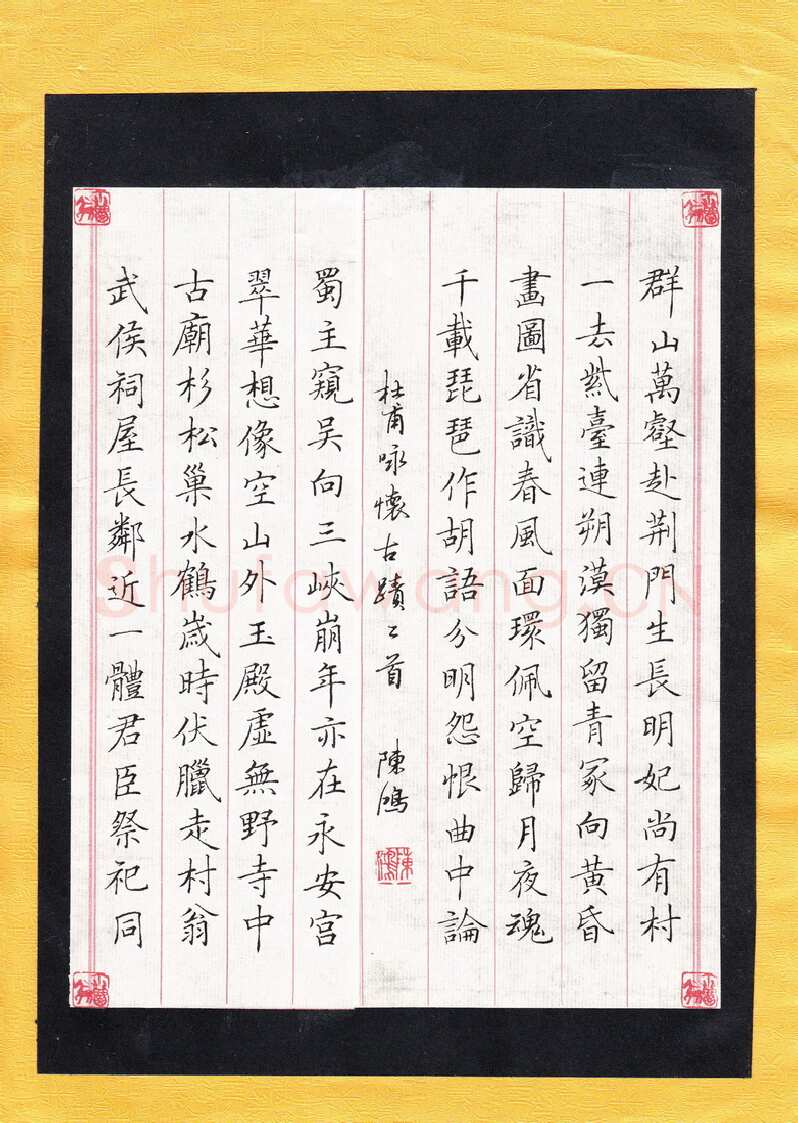 群山萬壑赴荆門生長明妃尚有村
一去紫臺連朔漠獨留青冢向黃昏
畫圖省識春風面環佩空歸月夜魂
千載琵琶作胡語分明怨恨曲中論
杜甫咏懷古蹟二首 陳鴻
陳鴻
蜀主窺吴向三峽崩年亦在永安宮
翠華想像空山外玉殿虛無野寺中
古廟杉松巢水鶴歲時伏臘走村翁
武侯祠屋長鄰近一體君臣祭祀同
Shufawang.CN